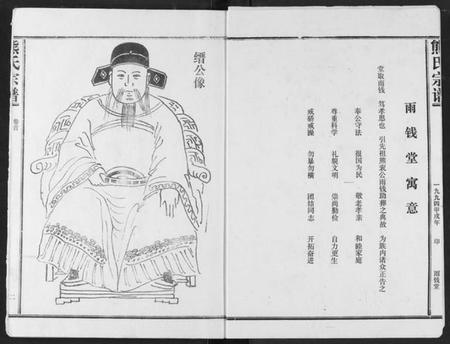 熊氏宗譜
一九九四甲戌年 印 雨钱堂
雨钱堂寓意
堂取雨钱 笃孝思也 引先祖熊衮公雨钱助葬之典故 为族内诸众正告之
奉公守法 报国为民 敬老孝亲 和睦家庭
尊重科学 礼貌文明 崇尚勤俭 自力更生
戒骄戒躁 勿暴勿横 团结同志 开拓奋进
缙公像
熊氏宗譜
卷首
二